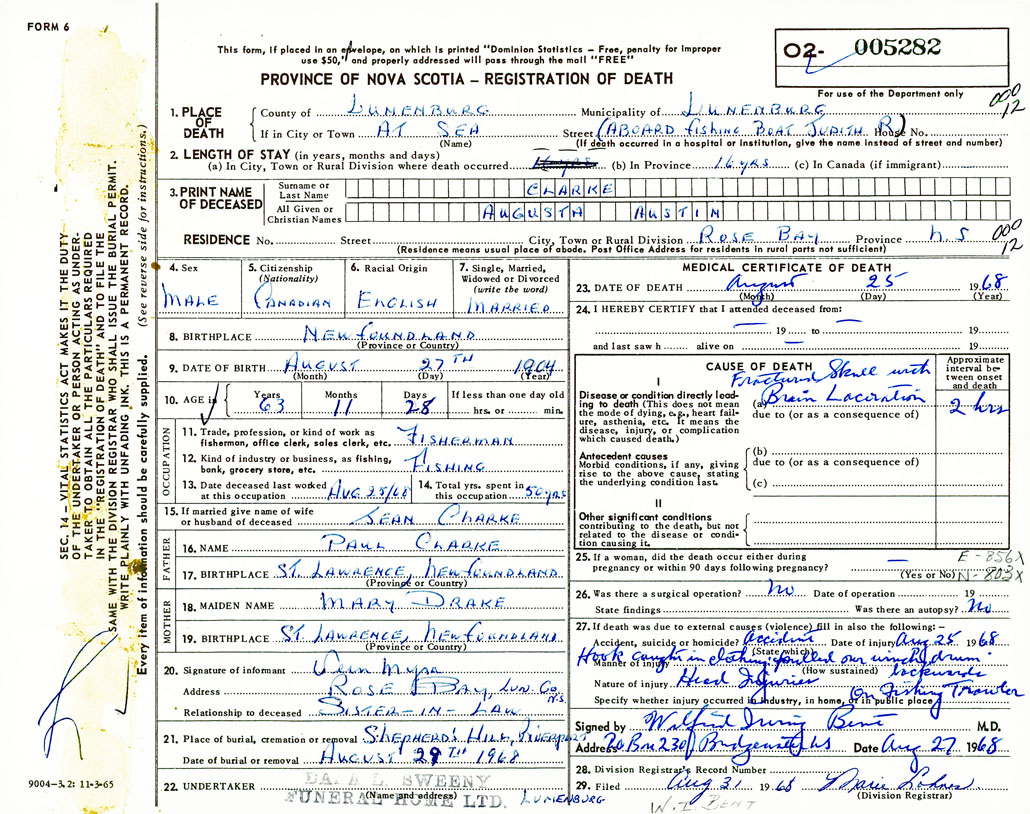 FORM 6
This form, if placed in an envelope, on which is printed "Dominion Statistics – Free, penalty for improper
use $50," and properly addressed will pass through the mail "FREE"
PROVINCE OF NOVA SCOTIA – REGISTRATION OF DEATH
02- 005282
For use of the Department only
000
12
SEC. 14 – VITAL STATISTICS ACT MAKES IT THE DUTY
OF THE UNDERTAKER OR PERSON ACTING AS UNDER-
TAKER TO OBTAIN ALL THE PARTICULARS REQUIRED
IN THE "REGISTRATION OF DEATH" AND TO FILE THE
SAME WITH THE DIVISION REGISTRAR WHO SHALL ISSUE THE BURIAL PERMIT.
WRITE PLAINLY WITH UNFADING INK. THIS IS A PERMANENT RECORD.
Every item of information should be carefully supplied. (See reverse side for instructions.)
1. PLACE OF DEATH County of LUNENBURG Municipality of LUNENBURG
If in City or Town AT SEA Street (ABOARD FISHING BOAT JUDITH R) House No.
(Name) (If death occurred in a hospital or institution, give the name instead of street and number)
2. LENGTH OF STAY (in years, months and days)
(a) In City, Town or Rural Division where death occurred 16 yrs (b) In Province 16 yrs (c) In Canada (if immigrant)
3. PRINT NAME OF DECEASED Surname or Last Name CLARKE
All Given or Christian Names AUGUSTA AUSTIN
RESIDENCE No. Street City, Town or Rural Division ROSE BAY Province N.S
000
12
(Residence means usual place of abode. Post Office Address for residents in rural parts not sufficient)
4. Sex MALE
5. Citizenship (Nationality) CANADIAN
6. Racial Origin ENGLISH
7. Single, Married, Widowed or Divorced (write the word) MARRIED
8. BIRTHPLACE NEWFOUNDLAND
(Province or Country)
9. DATE OF BIRTH AUGUST 27TH 1904
(Month) (Day) (Year)
10. AGE in Years 63 Months 11 Days 28 If less than one day old hrs. or min.
OCCUPATION
11. Trade, profession, or kind of work as fisherman, office clerk, sales clerk, etc. FISHERMAN
12. Kind of industry or business, as fishing, bank, grocery store, etc. FISHING
13. Date deceased last worked at this occupation AUG 25/68 14. Total yrs. spent in this occupation 50 yrs
15. If married give name of wife or husband of deceased JEAN CLARKE
FATHER
16. NAME PAUL CLARKE
17. BIRTHPLACE ST. LAWRENCE, NEWFOUNDLAND
(Province or Country)
MOTHER
18. MAIDEN NAME MARY DRAKE
19. BIRTHPLACE ST. LAWRENCE, NEWFOUNDLAND
(Province or Country)
20. Signature of informant Myra
Address ROSE BAY, LUN. CO. N.S.
Relationship to deceased SISTER-IN-LAW
21. Place of burial, cremation or removal SHEPHERDS HILL, RIVERPORT
Date of burial or removal AUGUST 29TH 1968
22. UNDERTAKER (Name and address) DANA L. SWEENY
FUNERAL HOME LTD. LUNENBURG
9004–3.2: 11-3-65
MEDICAL CERTIFICATE OF DEATH
23. DATE OF DEATH August 25 1968
(Month) (Day) (Year)
24. I HEREBY CERTIFY that I attended deceased from:
19 to 19
and last saw h alive on 19
CAUSE OF DEATH
Approximate interval between onset and death
I
Disease or condition directly leading to death (This does not mean the mode of dying, e.g., heart failure, asthenia, etc. It means the disease, injury, or complication which caused death.)
Fractured Skull with
(a) Brain Laceration 2 hrs
due to (or as a consequence of)
Antecedent causes
Morbid conditions, if any, giving rise to the above cause, stating the underlying condition last.
(b)
due to (or as a consequence of)
(c)
II
Other significant conditions
contributing to the death, but not related to the disease or condition causing it.
25. If a woman, did the death occur either during
pregnancy or within 90 days following pregnancy? –
(Yes or No)
E-856X
N-803X
26. Was there a surgical operation? No Date of operation 19
State findings Was there an autopsy? No
27. If death was due to external causes (violence) fill in also the following:–
Accident, suicide or homicide? Accident Date of injury Aug 25 1968
(State which)
Manner of injury Hook caught in clothing pulled over winch drum backwards
(How sustained)
Nature of injury Head Injuries
Specify whether injury occurred in industry, in home, or in public place On Fishing Trawler
Signed by Wilfrid Irving Bent M.D.
Address Po Box 230 Bridgewater NS Date Aug 27 1968
28. Division Registrar's Record Number
29. Filed Aug 31 1968 Marie Lohnes
(Division Registrar)
W. I. BENT